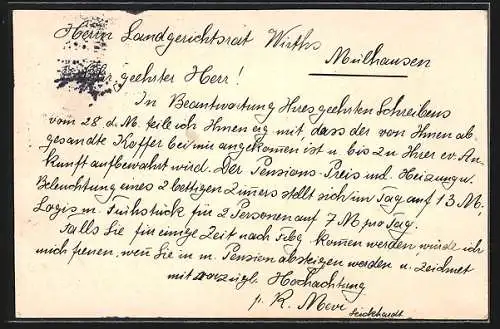 Herrn Landgerichtsrat Wirths
Mülhausen
geehrter Herr!
In Beantwortung Ihres geehrten Schreibens
vom 28 d. M. teile ich Ihnen erg mit, dass der von Ihnen ab-
gesandte Koffer bei mir angekommen ist u. bis zu Ihrer ev. An-
kunft aufbewahrt wird. Der Pensions-Preis incl. Heizung u.
Beleuchtung eines 2 bettigen Zimers stellt sich im Tag auf 13 M.
Logis m. Frühstück für 2 Personen auf 7 M pro Tag.
Falls Sie für einige Zeit nach Fbg. kommen werden, würde ich
mich freuen, wen Sie in m. Pension absteigen werden u. zeichnet
mit vorzügl. Hochachtung
p. K. Mevi